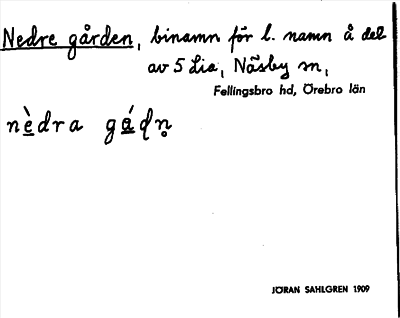 Nedre gården, binamn för l. namn å del
av 5 Lia, Näsby sn,
Fellingsbro hd, Örebro län
nèdra gádn̥
JÖRAN SAHLGREN 1909